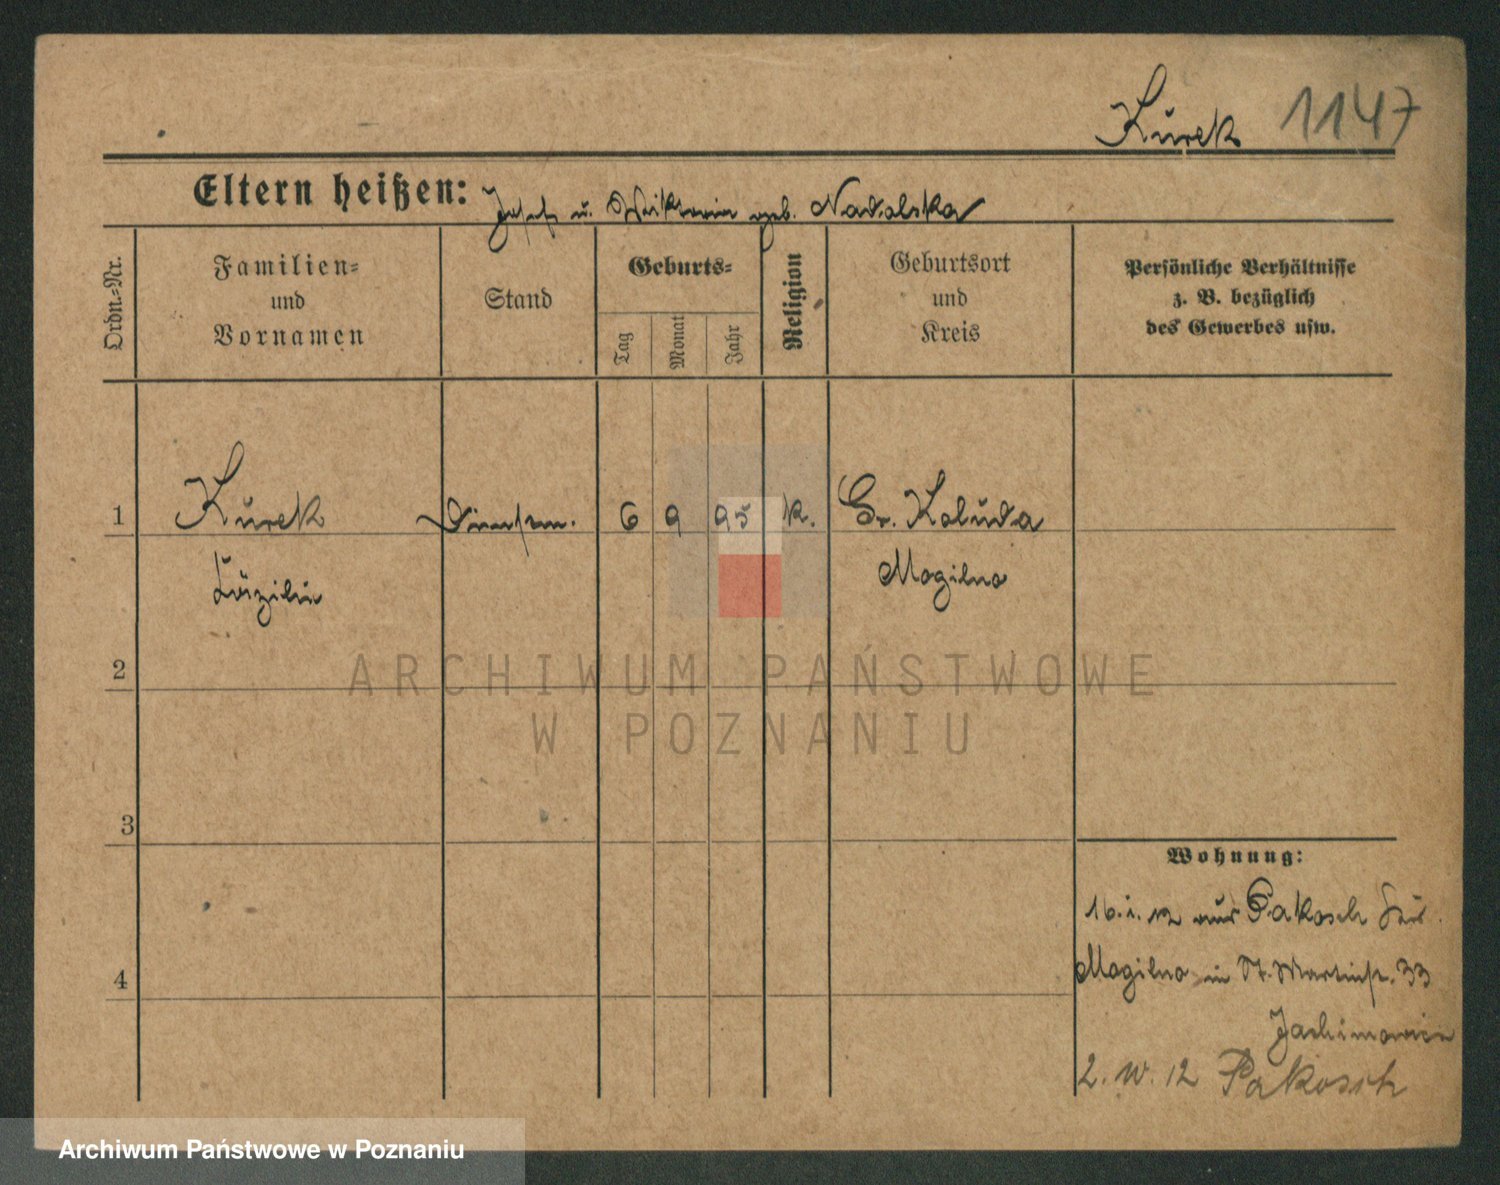 Kurek 1147
Eltern heißen: Josef u. Wiktoria geb. Nadolska
Ordn.-Nr.
Familien-
und
Vornamen
Stand
Geburts-
Tag
Monat
Jahr
Religion
Geburtsort
und
Kreis
Persönliche Verhältnisse
z. B. bezüglich
des Gewerbes usw.
1 Kurek 6 9 95 k. Gr. Koluda
Cäzilie Mogilno
2
3
4
Wohnung:
16.1.12 aus Pakosch
Mogilno in St. Martinstr. 33
Jachimowicz
2. 12 Pakosch
ARCHIWUM PAŃSTWOWE
W POZNANIU
Archiwum Państwowe w Poznaniu